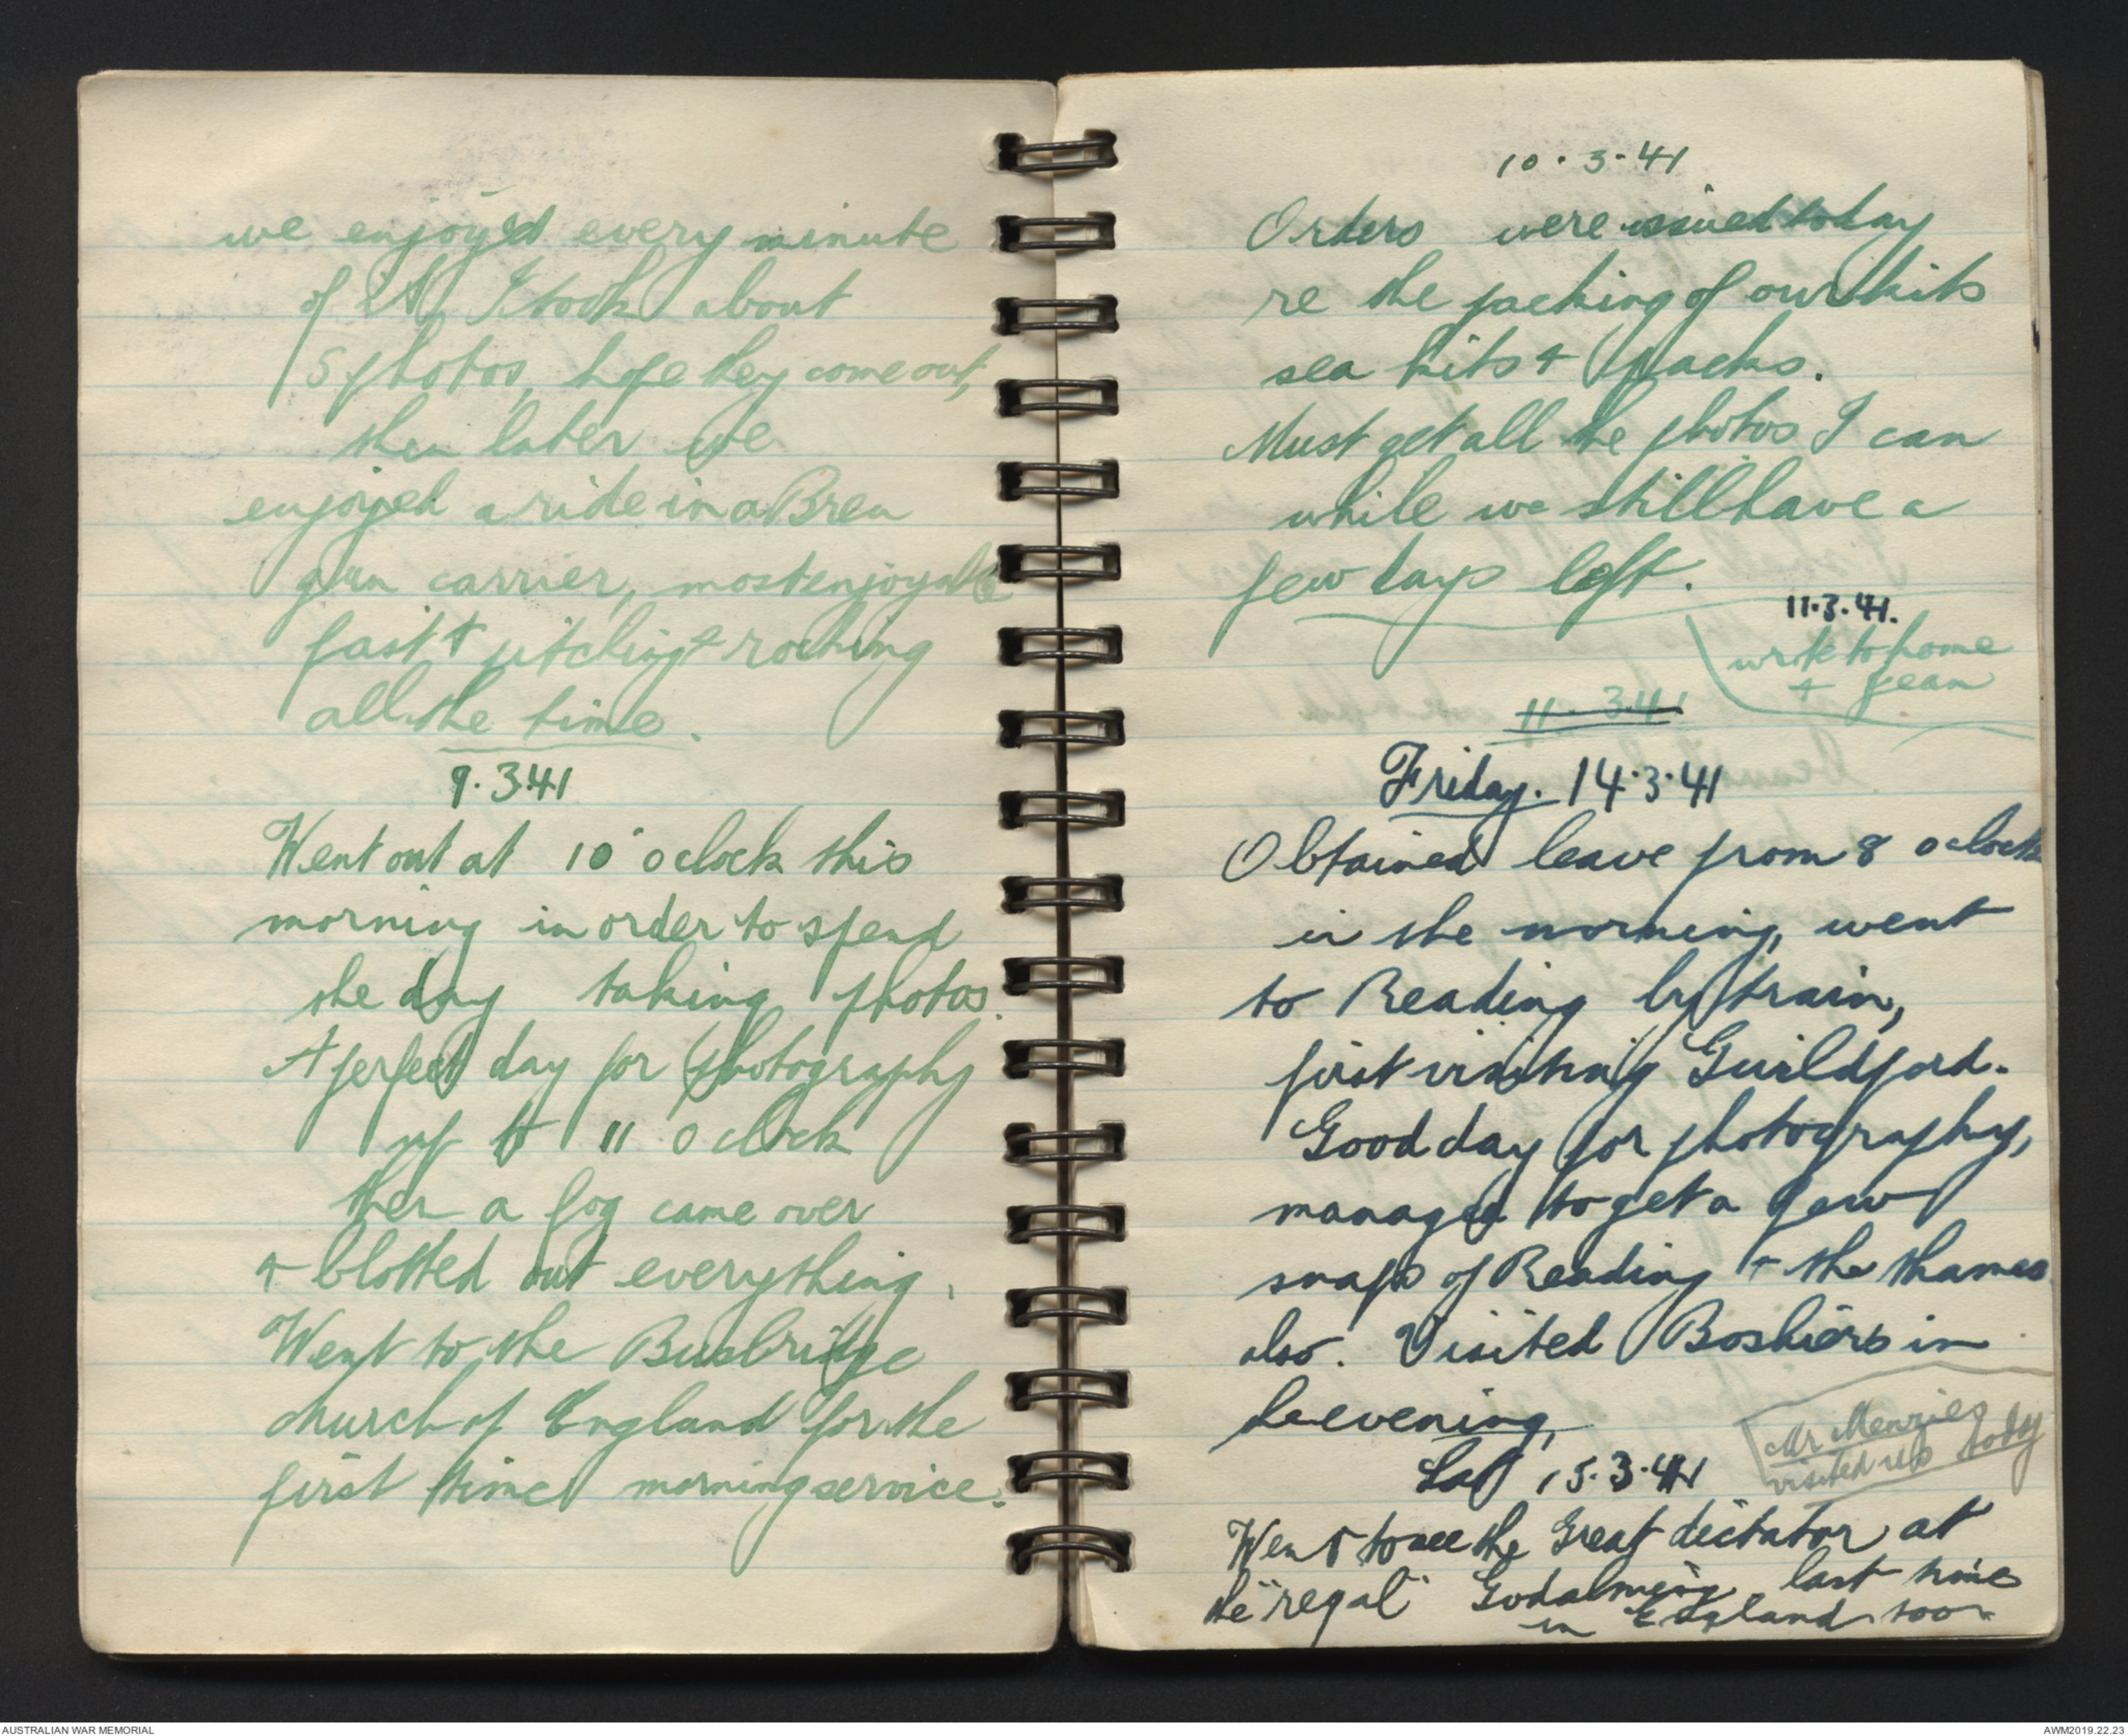 we enjoyed every minute
of it, I took about
5 photos, hope they come out,
then later we
enjoyed a ride in a Bren
gun carrier, most enjoyable
fast + pitching + rocking
all the time.
9.3.41
Went out at 10 o clock this
morning in order to spend
the day taking photos.
A perfect day for photography
up to 11 o clock
then a fog came over
+ blotted out everything.
Went to the Busbridge
church of England for the
first time morning service.
10.3.41
Orders were issued today
re the packing of our kits
sea kits + packs.
Must get all the photos I can
while we still have a
few days left.
11.3.41.
write to home
+ Jean
11.3.41
Friday. 14.3.41
Obtained leave from 8 o clock
in the morning, went
to Reading by train,
first visiting Guildford.
Good day for photography,
managed to get a few
snaps of Reading + the thames
also. Visited Boshiers in
the evening,
Mr Menzies
visited us today
Sat 15.3.41
Went to see the Great dictator at
the "regal" Godalming, last time
in England too.
AUSTRALIAN WAR MEMORIAL
AWM2019.22.23